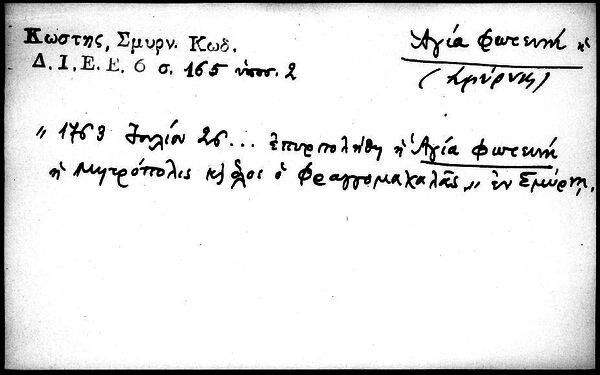 Κωστης, Σμυρν. Κωδ.
Δ. Ι. Ε. Ε. 6 σ. 165 υποσ. 2
Ἁγία Φωτεινή ἡ
(Σμύρνης)
„ 1763 Ἰουλίου 26... ἐπυρπολήθη ἡ Ἁγία Φωτεινή
ἡ Μητρόπολις κ̀ ὅλος ὁ Φραγγομαχαλᾶς „ ἐν Σμύρνῃ.